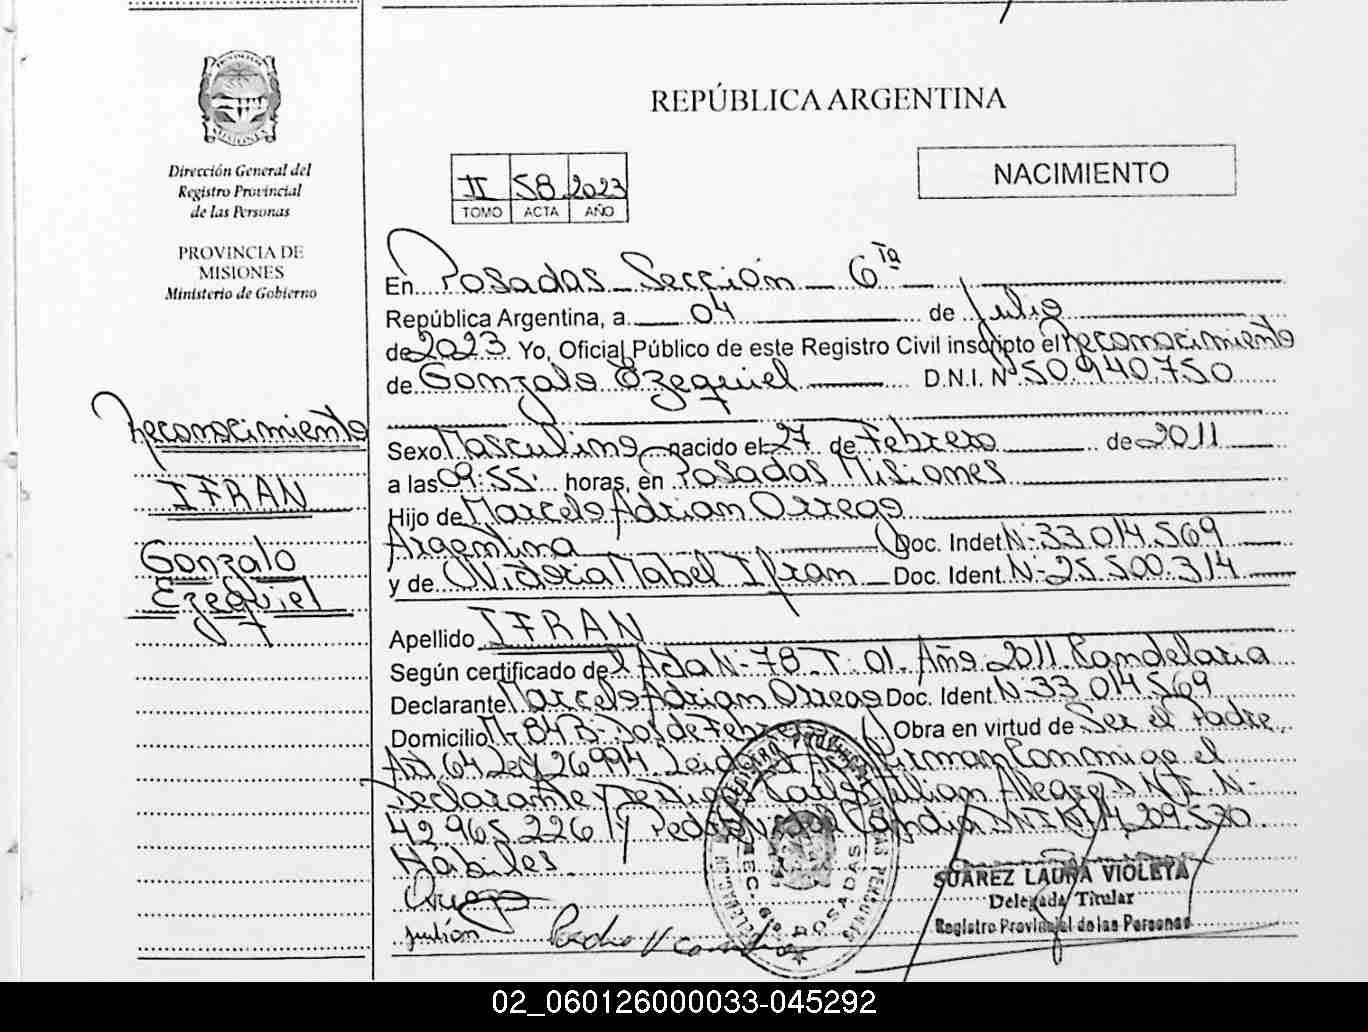 Dirección General del
Registro Provincial
de las Personas
PROVINCIA DE
MISIONES
Ministerio de Gobierno
Reconocimiento
IFRAN
Gonzalo
Ezequiel
REPÚBLICA ARGENTINA
II 58 2023
TOMO ACTA AÑO
NACIMIENTO
En Posadas Sección 6ta
República Argentina, a 04 de Julio
de 2023. Yo, Oficial Público de este Registro Civil inscripto el Reconocimiento
de Gonzalo Ezequiel D.N.I. Nº 50.940.750
Sexo Masculino nacido el 27 de Febrero de 2011
a las 09:55 horas, en Posadas Misiones
Hijo de Marcelo Adrian Orrego
Argentina Doc. Indet N- 33.014.569
y de Victoria Mabel Ifran Doc. Ident. N- 25.500.314
Apellido IFRAN
Según certificado del Acta N- 78 T: 01. Año 2011 Candelaria
Declarante Marcelo Adrian Orrego Doc. Ident. N- 33.014.569
Domicilio Mz 84 B- Dos de Febrero Obra en virtud de Ser el Padre
Art. 64 Ley 26994. Leida el Firman Conmigo el
Declarante Testigos Julian Alegre D.N.I. N-
42.965.226 y Pedro Candia 14.209.530
Hábiles.
Orrego
julián
SUAREZ LAURA VIOLETA
Delegada Titular
Registro Provincial de las Personas
SEC. 6ta POSADAS
02_060126000033-045292